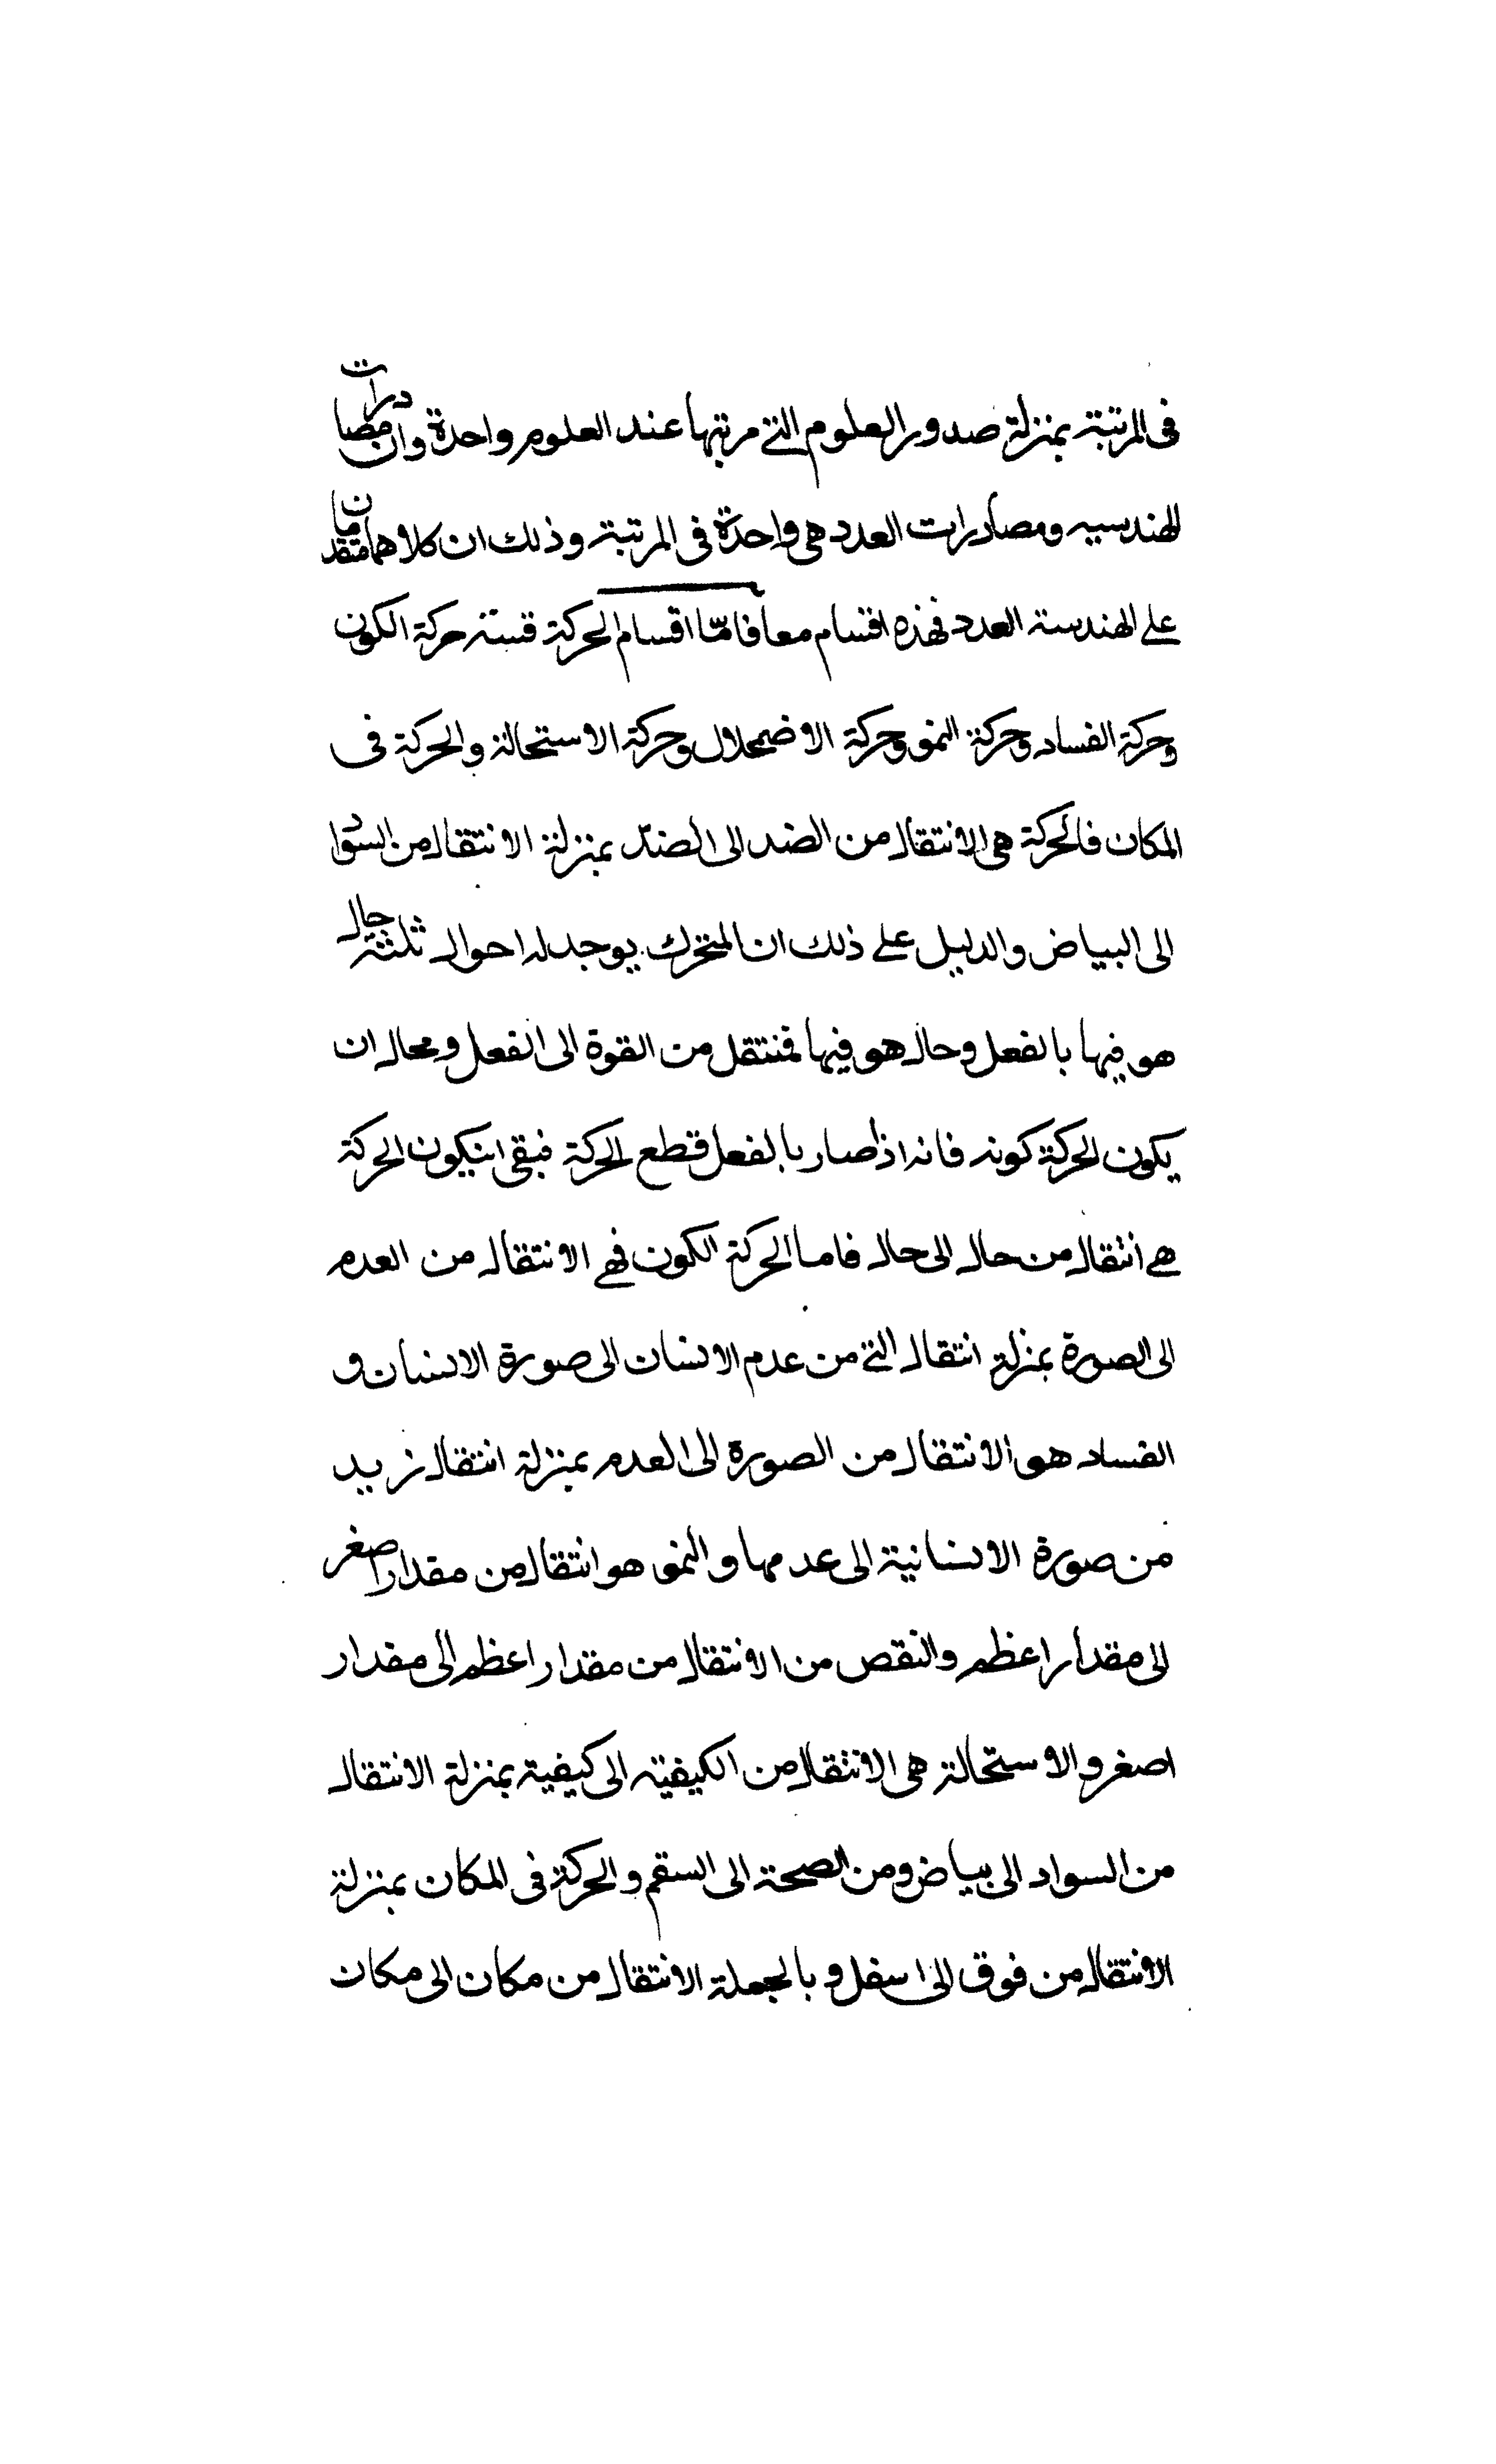 فى المرتبة بمنزلة صدور العلوم التى مرتبها عند العلوم واحدة وان مصادرات
الهندسيه ومصادرات العدد هى واحدة فى المرتبة وذلك ان كلاهما متقدمان
على الهندسة العدد فهذه اقسام معا فامّا اقسام الحركة فستة حركة الكون
وحركة الفساد وحركة النمو وحركة الاضمحلال وحركة الاستحالة والحركة فى
المكان فالحركة هى الانتقال من الضد الى الضدّ بمنزلة الانتقال من السواد
الى البياض والدليل على ذلك ان المتحرك يوجد له احوال ثلثة حال
هو فيها بالفعل وحال هو فيها فمنتقل من القوة الى الفعل ومحال ان
يكون الحركة كونه فانه اذا صار بالفعل قطع الحركة فبقى ان يكون الحركة
هى انتقال من حال الى حال فاما الحركة الكون فهى الانتقال من العدم
الى الصورة بمنزلة انتقال التى من عدم الانسان الى صورة الانسان و
الفساد هو الانتقال من الصورة الى العدم بمنزلة انتقال زيد
من صورة الانسانية الى عدمها والنمو هو انتقال من مقدار اصغر
الى مقدار اعظم والنقص من الانتقال من مقدار اعظم الى مقدار
اصغر والاستحالة هى الانتقال من الكيفية الى كيفية بمنزلة الانتقال
من السواد الى بياض ومن الصحة الى السقم والحركة فى المكان بمنزلة
الانتقال من فوق الى اسفل و بالجملة الانتقال من مكان الى مكان